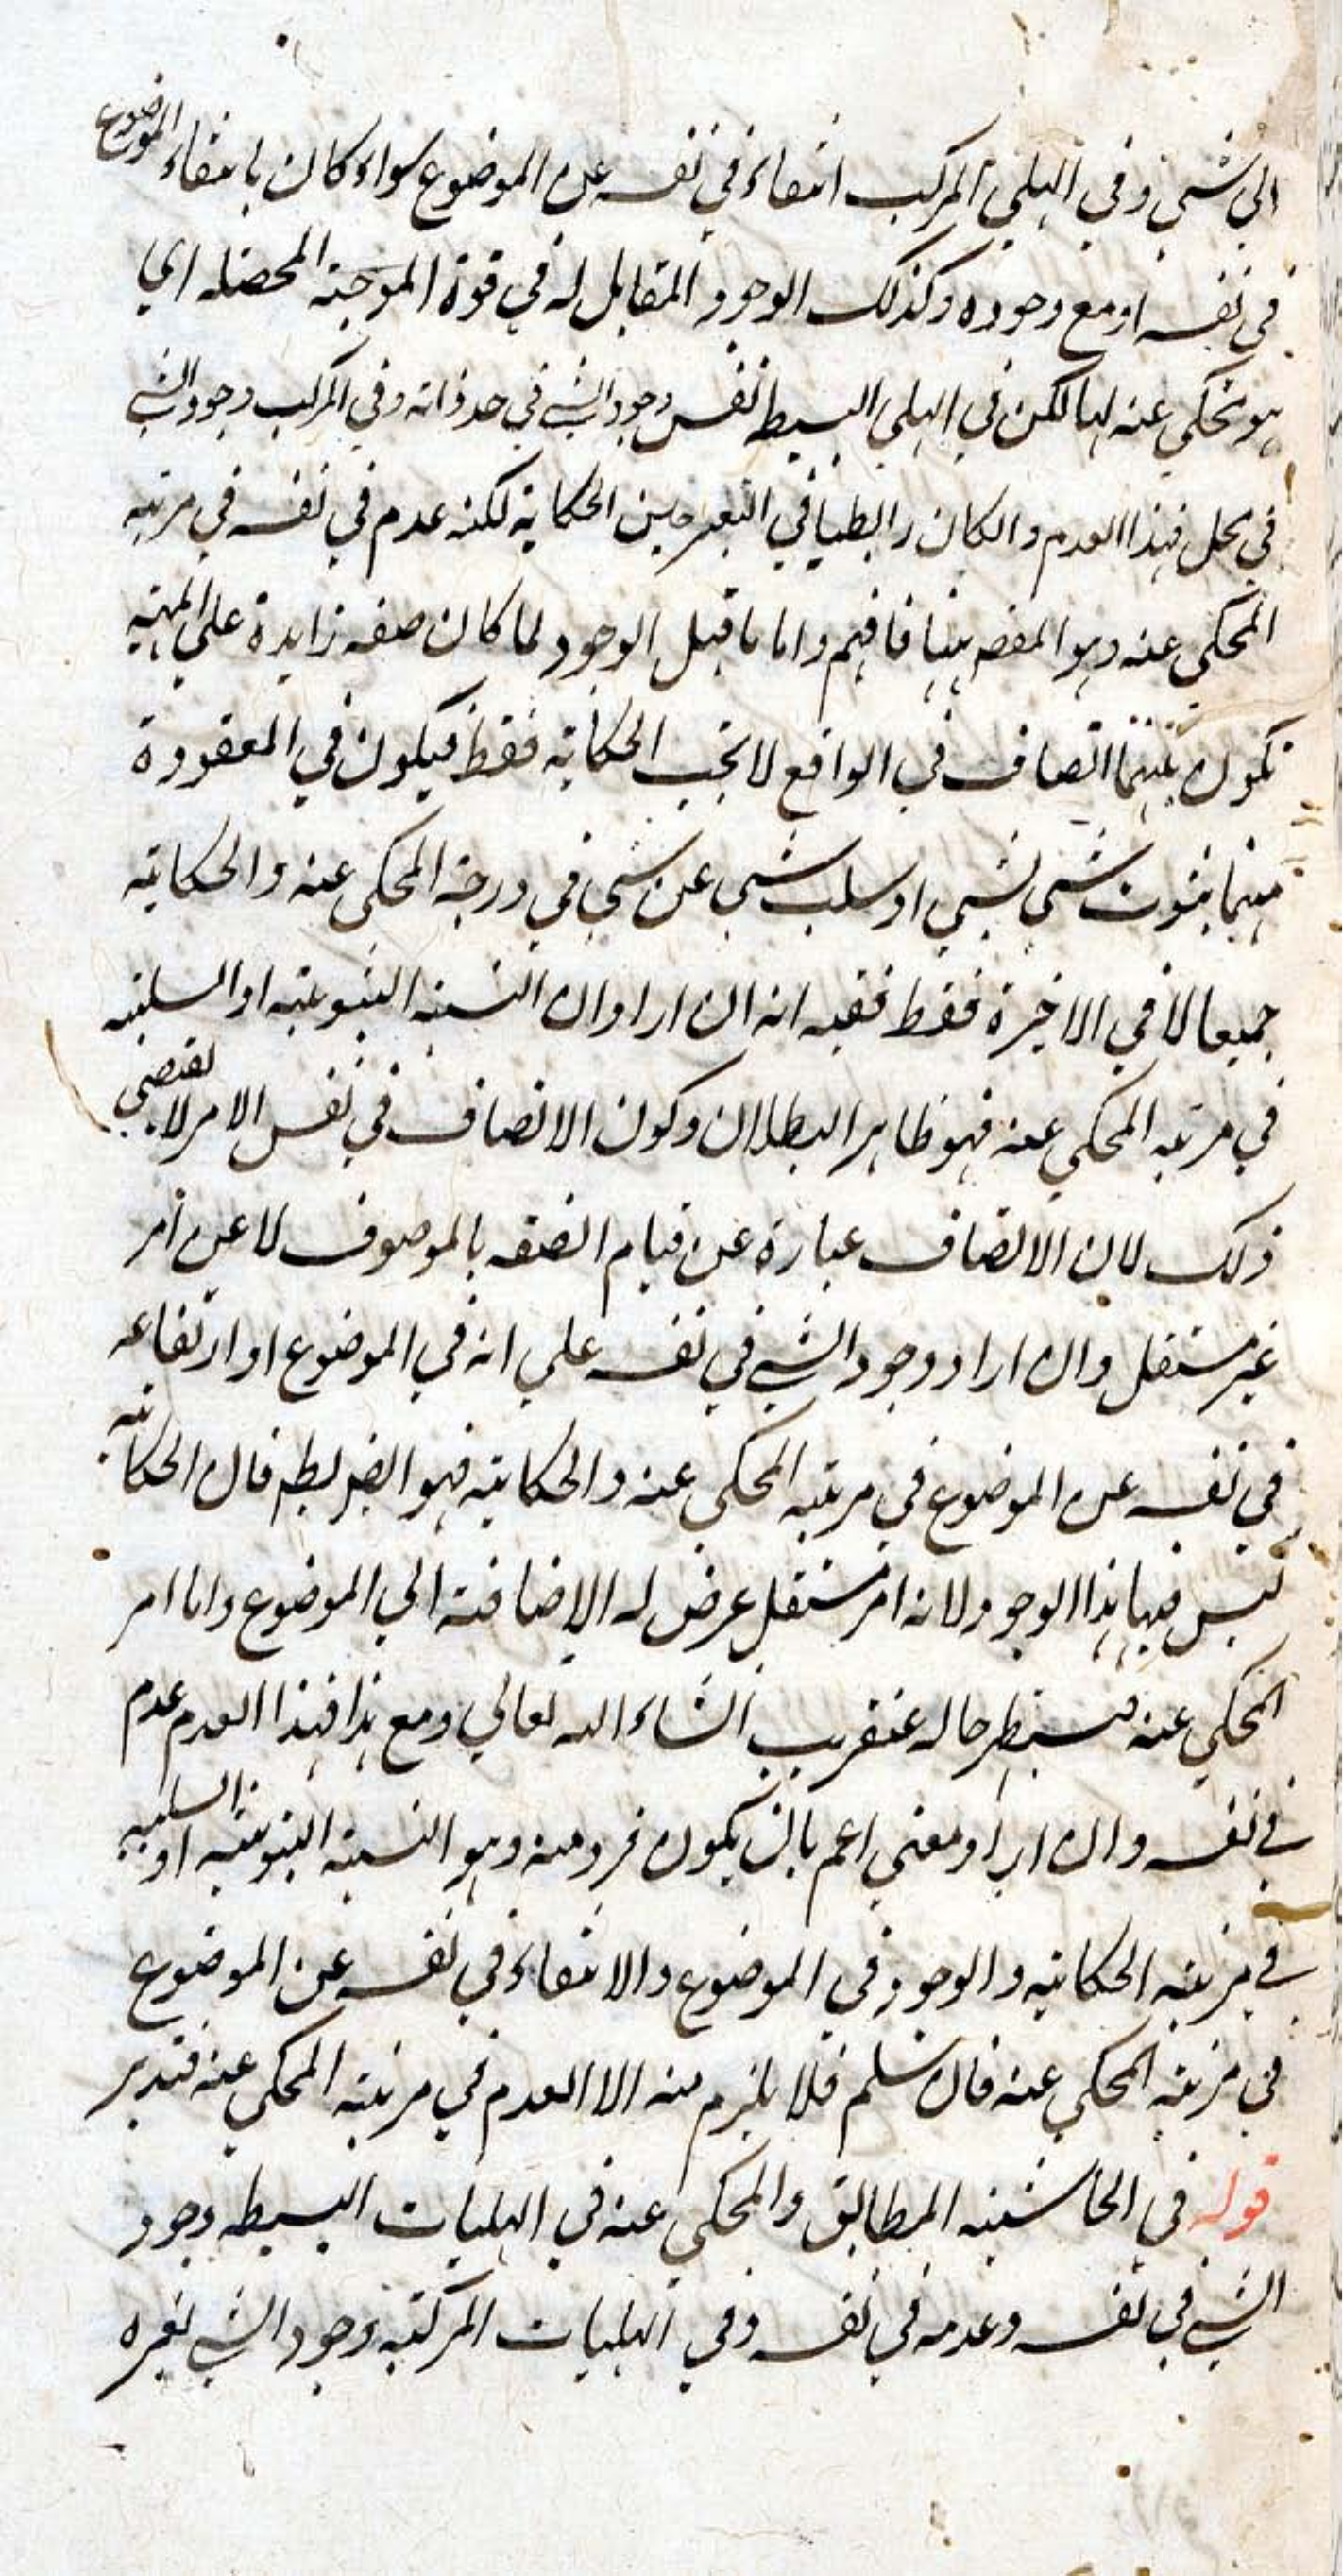 الى شي وفي الهلي المركب انتفاءه في نفسه عن الموضوع سواء كان بانتفاء الموضوع
في نفسه او مع وجوده وكذلك الوجود المقابل له في قوة الموجبة المحصله اي
هو محكي عنه لها لكن في الهلي البسيط نفس وجود الشي في حد ذاته وفي المركب وجود الشي
في محل فهذا العدم والكان رابطيا في التعبير حين الحكاية لكنه عدم في نفسه في مرتبه
المحكي عنه وهو المقص ههنا فافهم واما ما قيل الوجود لما كان صفه زايدة على المهيه
تكون بينهما اتصاف في الواقع لا بحسب الحكاية فقط فيكون في المعقودة
منهما ثبوت شي لشي او سلب شي عن شي في درجة المحكي عنه والحكاية
جميعا لا في الاخيرة فقط ففيه انه ان اراد ان النسبة الثبوتيه او السلبيه
في مرتبه المحكي عنه فهو ظاهر البطلان وكون الاتصاف في نفس الامر لا يقتضي
ذلك لان الاتصاف عبارة عن قيام الصفه بالموصوف لا عن امر
غير مستقل وان اراد وجود الشي في نفسه على انه في الموضوع او ارتفاعه
في نفسه عن الموضوع في مرتبه المحكي عنه والحكاية فهو ايض بط فان الحكاية
ليس فيها هذا الوجود لانه امر مستقل عرض له الاضافة الى الموضوع واما امر
المحكي عنه فسيظهر حاله عنقريب انشاء الله تعالى ومع هذا فهذا العدم عدم
في نفسه وان اراد معنى اعم بان يكون فرد منه وهو النسبة الثبوتيه او السلبيه
في مرتبه الحكاية والوجود في الموضوع والانتفاء في نفسه عن الموضوع
في مرتبة المحكي عنه فان سلم فلا يلزم منه الا العدم في مرتبة المحكي عنه فتدبر
قوله في الحاشيه المطابق والمحكي عنه في الهليات البسيطه وجود
الشي في نفسه وعدمه في نفسه وفي الهليات المركبة وجود الشي لغيره